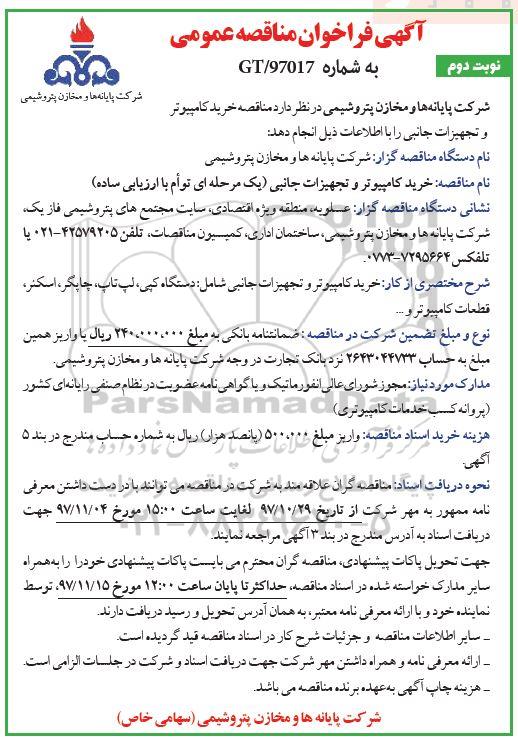 آگهی فراخوان مناقصه عمومی
به شماره GT/97017
نوبت دوم
شرکت پایانه‌ها و مخازن پتروشیمی
شرکت پایانه‌ها و مخازن پتروشیمی در نظر دارد مناقصه خرید کامپیوتر
و تجهیزات جانبی را با اطلاعات ذیل انجام دهد:
نام دستگاه مناقصه گزار: شرکت پایانه ها و مخازن پتروشیمی
نام مناقصه: خرید کامپیوتر و تجهیزات جانبی (یک مرحله ای توأم با ارزیابی ساده)
نشانی دستگاه مناقصه گزار: عسلویه، منطقه ویژه اقتصادی، سایت مجتمع های پتروشیمی فاز یک،
شرکت پایانه ها و مخازن پتروشیمی، ساختمان اداری، کمیسیون مناقصات، تلفن ۴۲۵۷۹۲۰۵-۰۲۱ یا
تلفکس ۷۲۹۵۶۶۴-۰۷۷۳.
شرح مختصری از کار: خرید کامپیوتر و تجهیزات جانبی شامل: دستگاه کپی، لپ تاپ، چاپگر، اسکنر،
قطعات کامپیوتر و ...
نوع و مبلغ تضمین شرکت در مناقصه : ضمانتنامه بانکی به مبلغ ۲۴۰،۰۰۰،۰۰۰ ریال یا واریز همین
مبلغ به حساب ۲۶۴۳۰۴۴۷۳۳ نزد بانک تجارت در وجه شرکت پایانه ها و مخازن پتروشیمی.
مدارک مورد نیاز: مجوز شورای عالی انفورماتیک و یا گواهی نامه عضویت در نظام صنفی رایانه‌ای کشور
(پروانه کسب خدمات کامپیوتری)
هزینه خرید اسناد مناقصه: واریز مبلغ ۵۰۰،۰۰۰ (پانصد هزار) ریال به شماره حساب مندرج در بند ۵
آگهی.
نحوه دریافت اسناد: مناقصه گران علاقه مند به شرکت در مناقصه می توانند با در دست داشتن معرفی
نامه ممهور به مهر شرکت از تاریخ ۹۷/۱۰/۲۹ لغایت ساعت ۱۵:۰۰ مورخ ۹۷/۱۱/۰۴ جهت
دریافت اسناد به آدرس مندرج در بند ۳ آگهی مراجعه نمایند.
جهت تحویل پاکات پیشنهادی، مناقصه گران محترم می بایست پاکات پیشنهادی خود را را به‌همراه
سایر مدارک خواسته شده در اسناد مناقصه، حداکثر تا پایان ساعت ۱۲:۰۰ مورخ ۹۷/۱۱/۱۵، توسط
نماینده خود و با ارائه معرفی نامه معتبر، به همان آدرس تحویل و رسید دریافت دارند.
ـ سایر اطلاعات مناقصه و جزئیات شرح کار در اسناد مناقصه قید گردیده است.
ـ ارائه معرفی نامه و همراه داشتن مهر شرکت جهت دریافت اسناد و شرکت در جلسات الزامی است.
ـ هزینه چاپ آگهی به‌عهده برنده مناقصه می باشد.
شرکت پایانه ها و مخازن پتروشیمی (سهامی خاص)
ParsNamadData